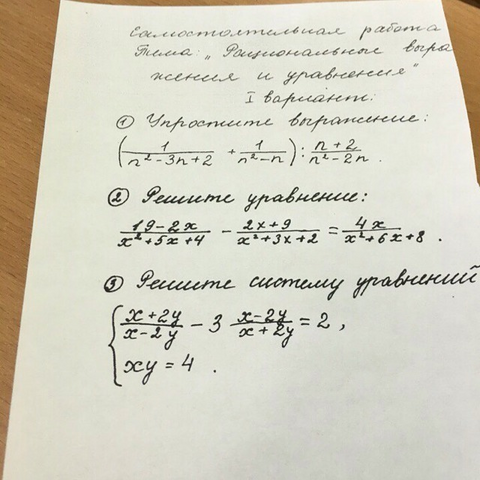 Самостоятельная работа
Тема: „Рациональные выра
жения и уравнения"
I вариант:
① Упростите выражение:
(1/(n²-3n+2) + 1/(n²-n)) : (n+2)/(n²-2n) .
② Решите уравнение:
(19-2x)/(x²+5x+4) - (2x+9)/(x²+3x+2) = 4x/(x²+6x+8) .
③ Решите систему уравнений
{ (x+2y)/(x-2y) - 3 (x-2y)/(x+2y) = 2 ,
xy = 4 .